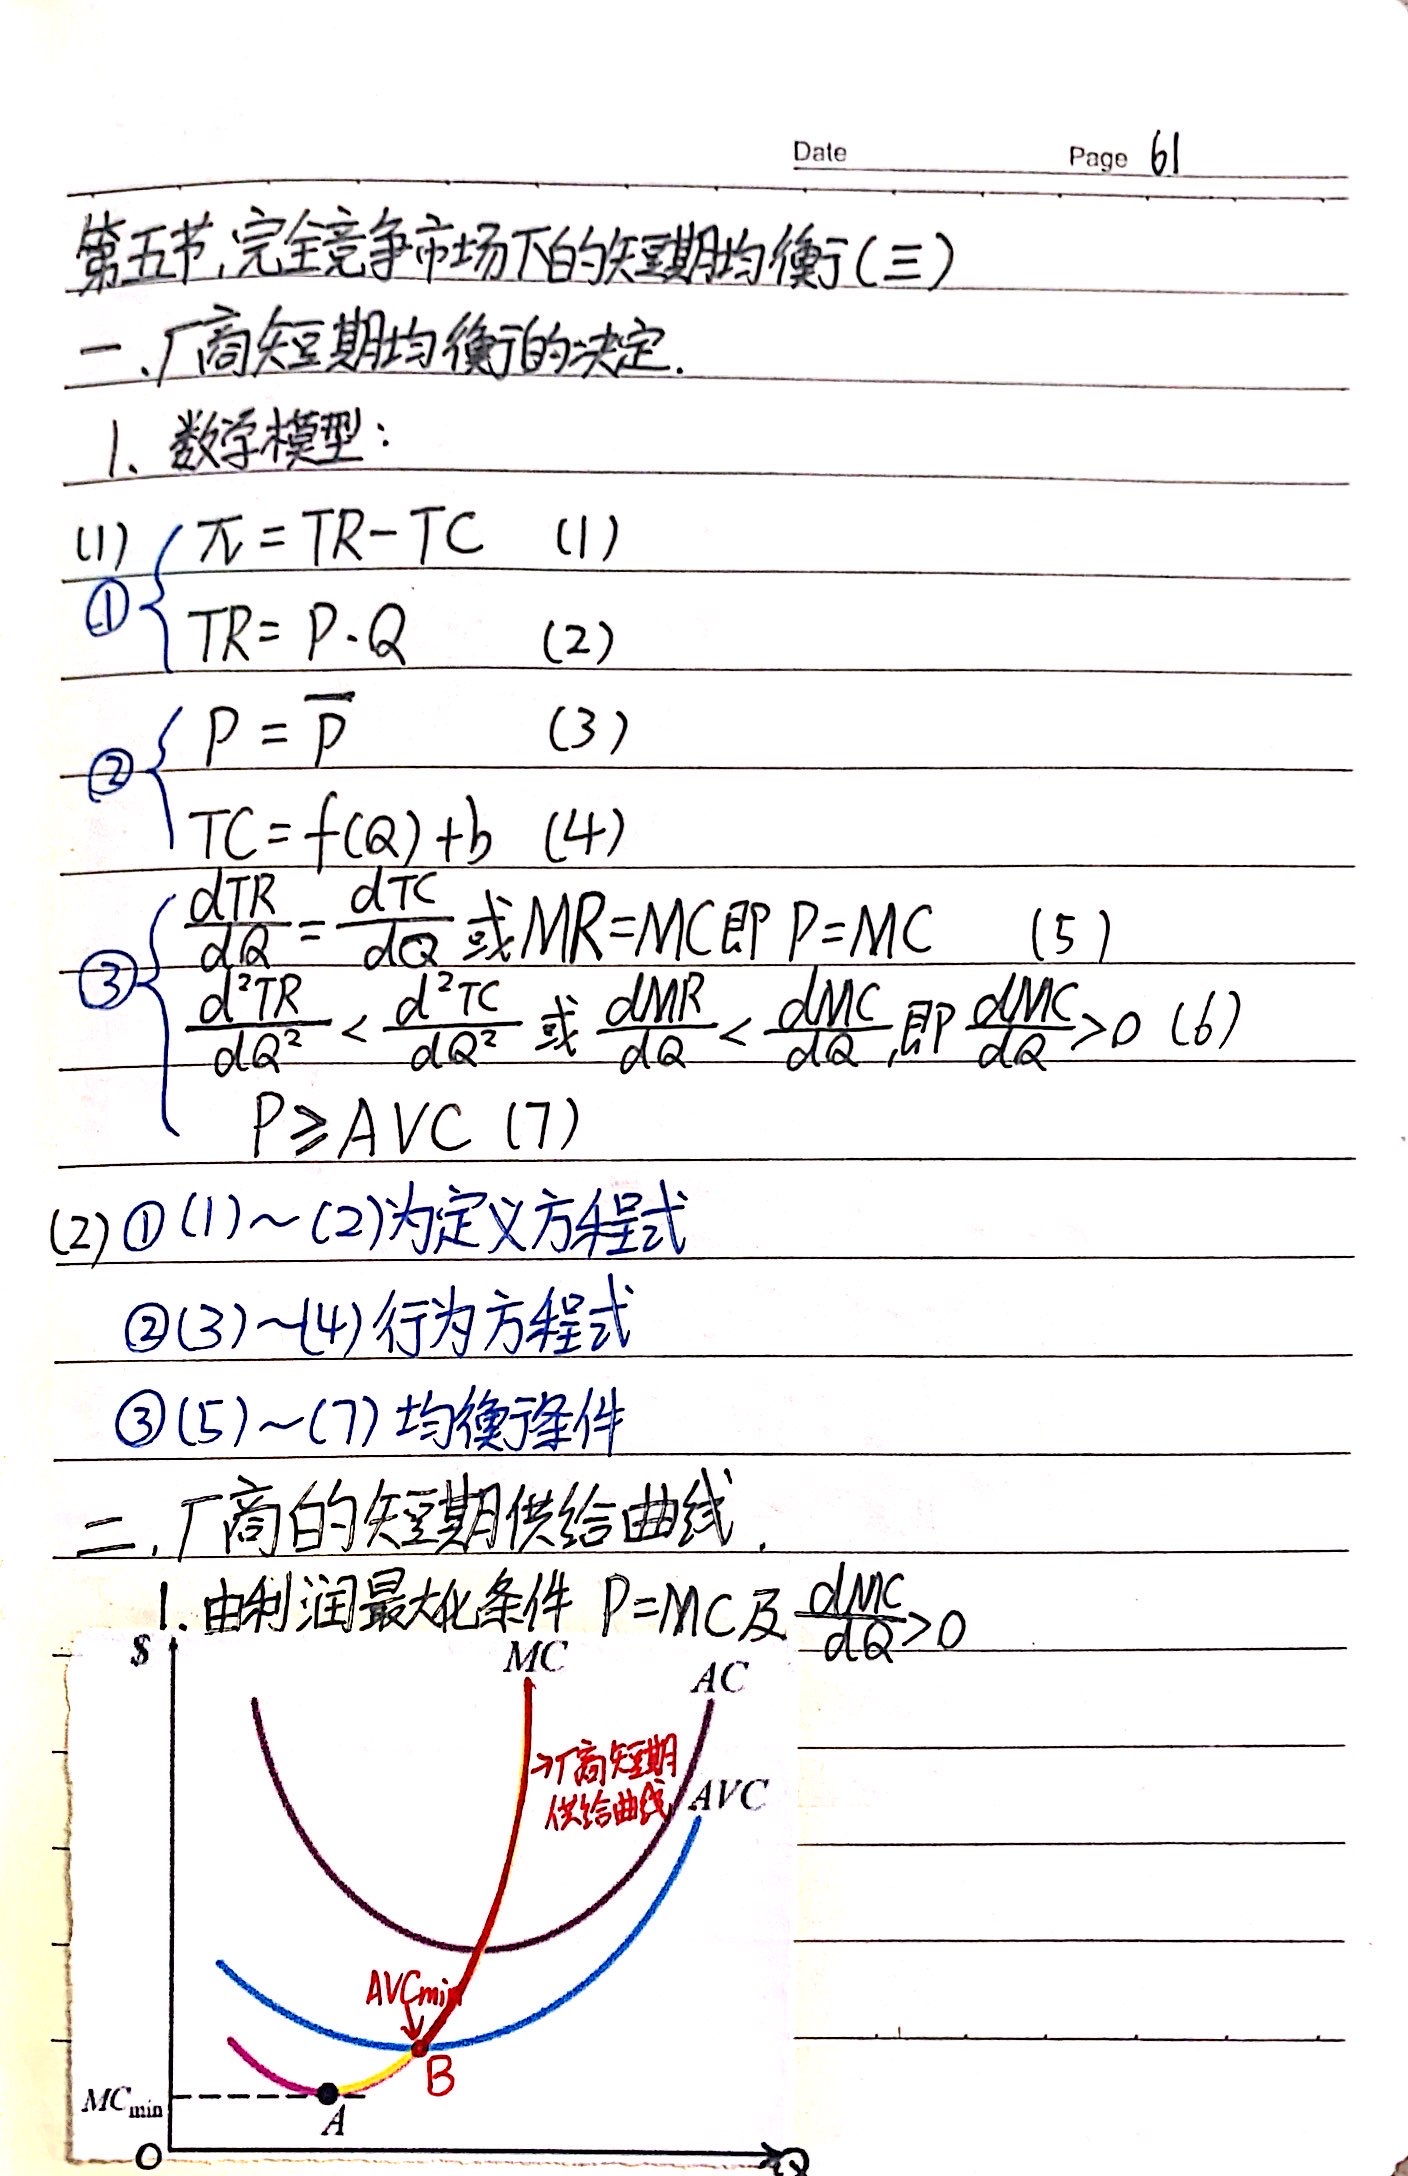 Date Page 61
第五节,完全竞争市场下的短期均衡(三)
一、厂商短期均衡的决定.
1、数学模型:
(1) π=TR-TC (1)
① TR=P·Q (2)
P=P̅ (3)
②
TC=f(Q)+b (4)
dTR/dQ=dTC/dQ 或MR=MC即P=MC (5)
③
d²TR/dQ²<d²TC/dQ² 或 dMR/dQ<dMC/dQ,即dMC/dQ>0 (6)
P≥AVC (7)
(2)①(1)~(2)为定义方程式
②(3)~(4)行为方程式
③(5)~(7)均衡条件
二、厂商的短期供给曲线.
1.由利润最大化条件 P=MC及dMC/dQ>0
$
MC
AC
→厂商短期
供给曲线
AVC
AVCmin
B
MCmin
A
O
Q